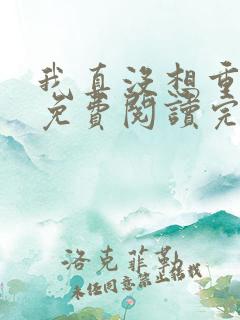 我真没想重
免費閱讀完
洛克菲勒
未经同意禁止转载